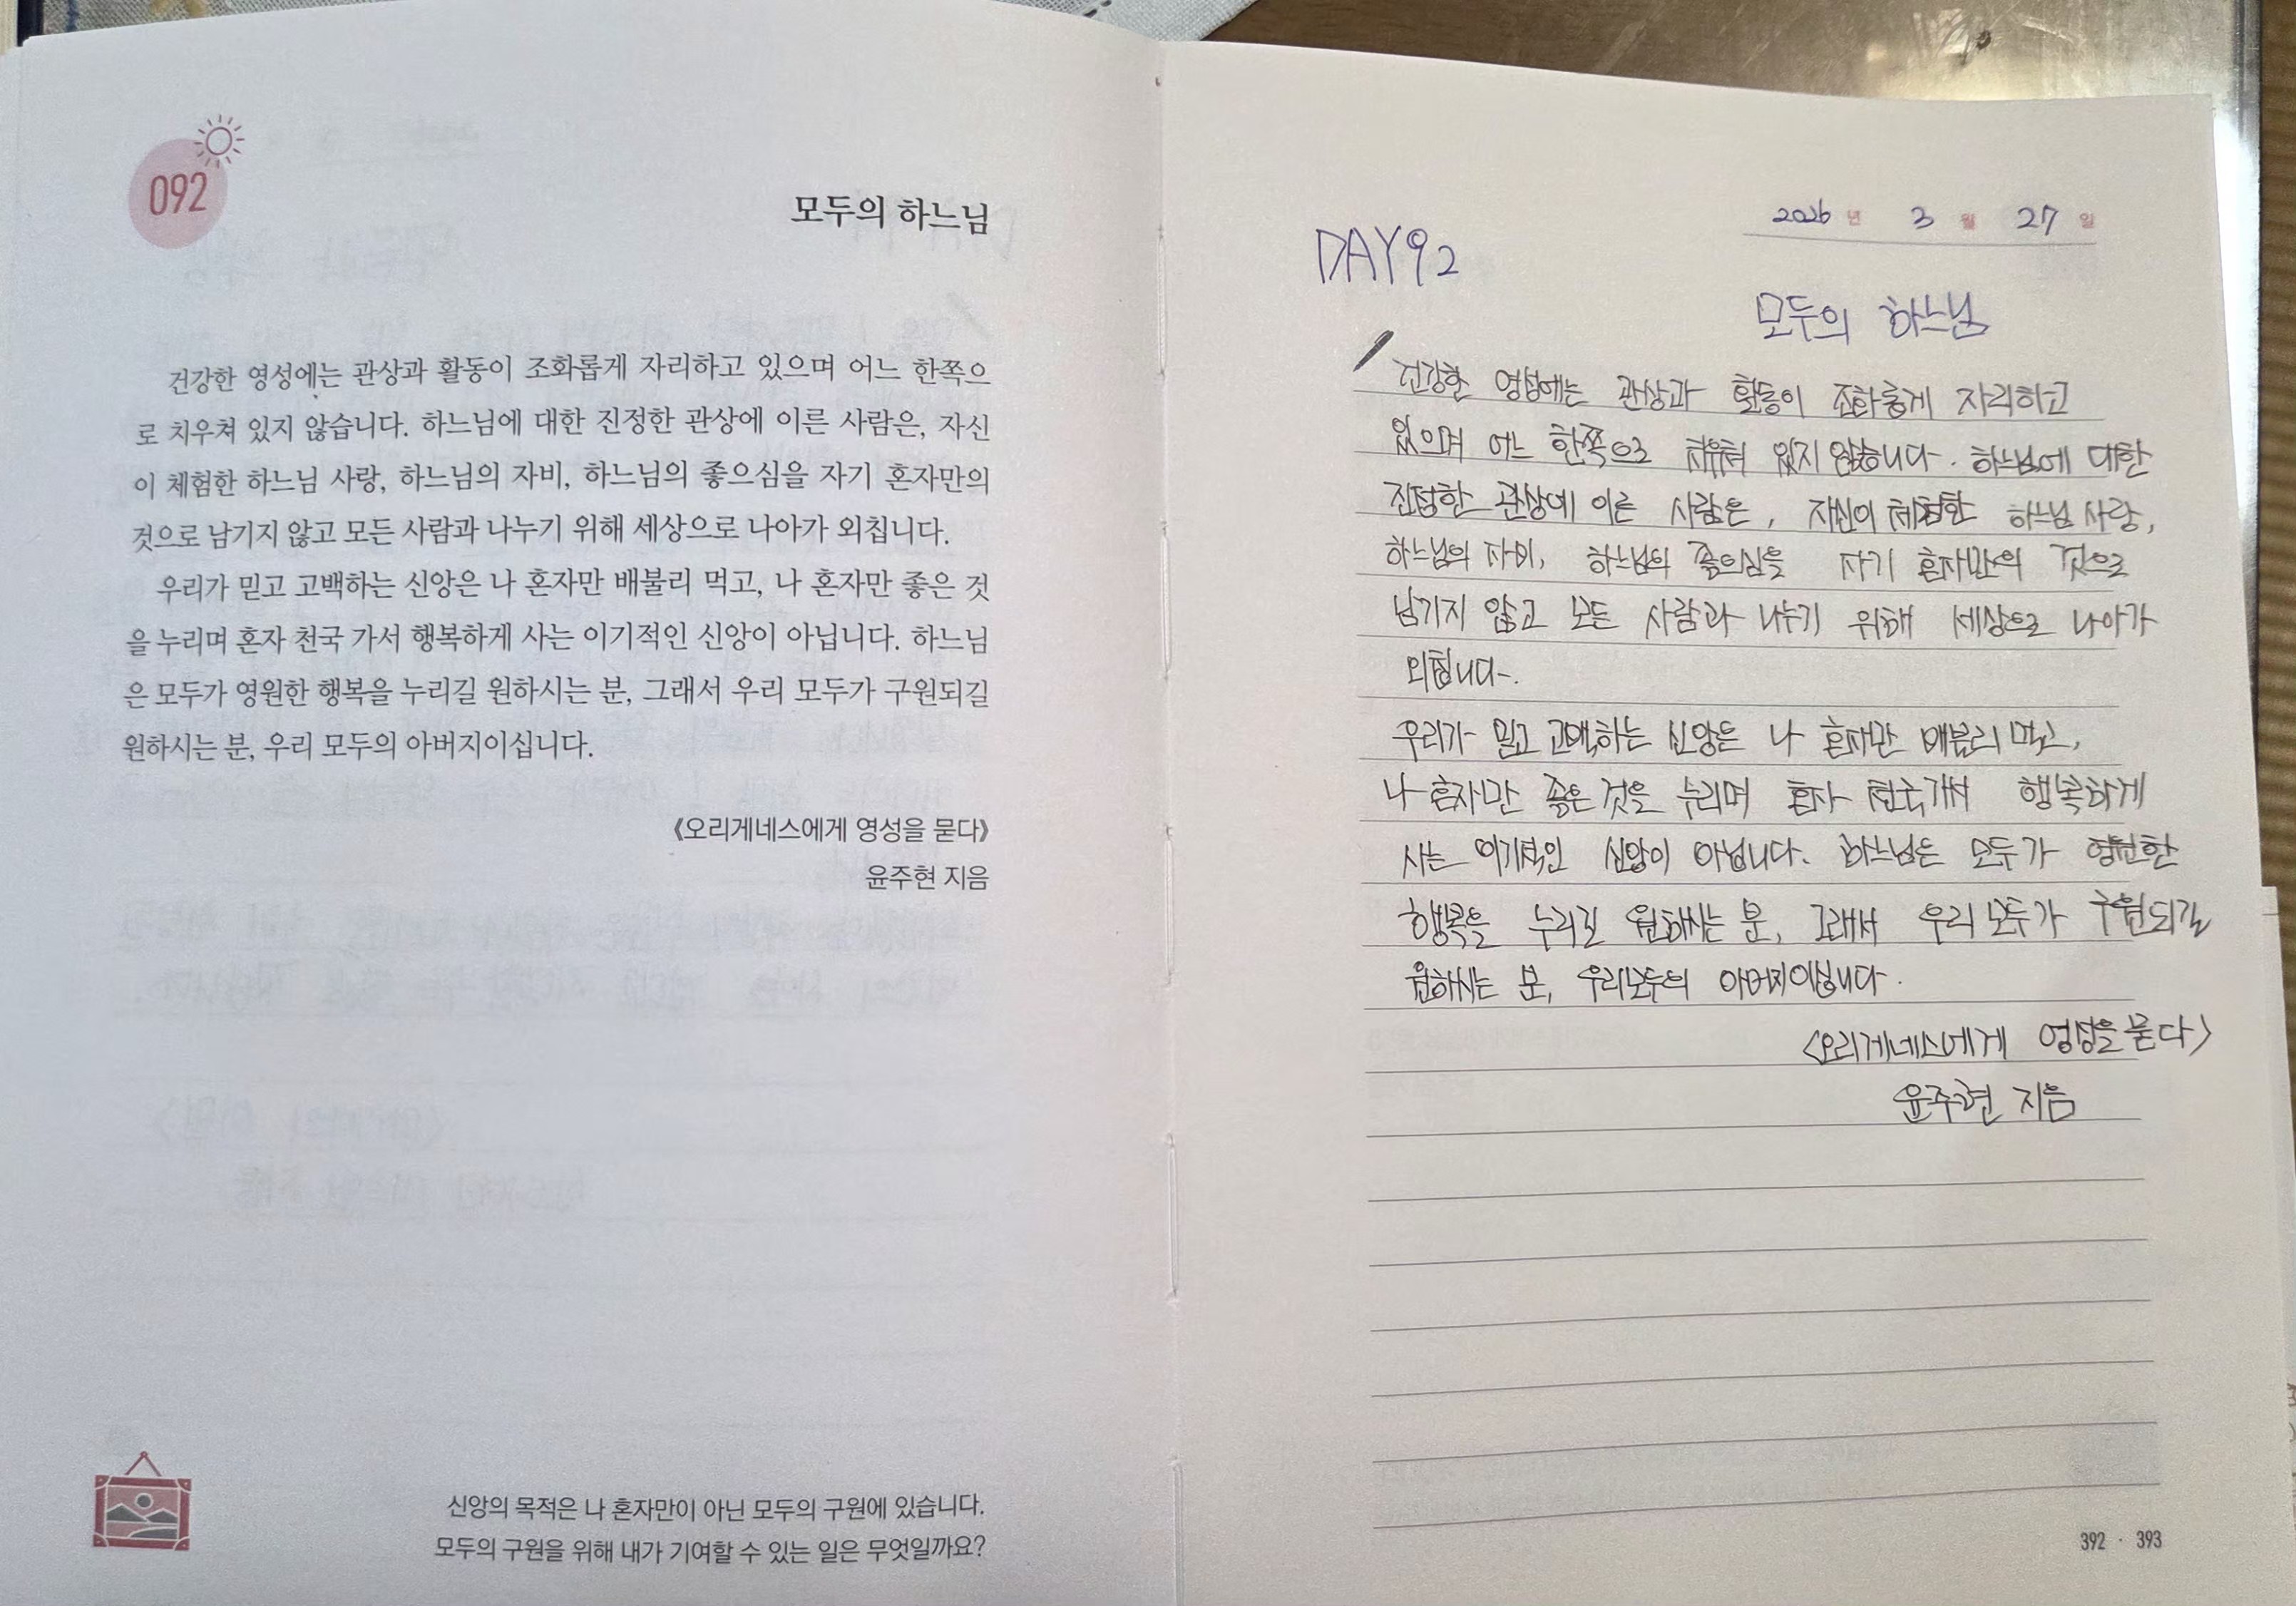 092
모두의 하느님
건강한 영성에는 관상과 활동이 조화롭게 자리하고 있으며 어느 한쪽으
로 치우쳐 있지 않습니다. 하느님에 대한 진정한 관상에 이른 사람은, 자신
이 체험한 하느님 사랑, 하느님의 자비, 하느님의 좋으심을 자기 혼자만의
것으로 남기지 않고 모든 사람과 나누기 위해 세상으로 나아가 외칩니다.
우리가 믿고 고백하는 신앙은 나 혼자만 배불리 먹고, 나 혼자만 좋은 것
을 누리며 혼자 천국 가서 행복하게 사는 이기적인 신앙이 아닙니다. 하느님
은 모두가 영원한 행복을 누리길 원하시는 분, 그래서 우리 모두가 구원되길
원하시는 분, 우리 모두의 아버지이십니다.
《오리게네스에게 영성을 묻다》
윤주현 지음
신앙의 목적은 나 혼자만이 아닌 모두의 구원에 있습니다.
모두의 구원을 위해 내가 기여할 수 있는 일은 무엇일까요?
2026년 3월 27일
DAY92
모두의 하느님
건강한 영성에는 관상과 활동이 조화롭게 자리하고
있으며 어느 한쪽으로 치우쳐 있지 않습니다. 하느님에 대한
진정한 관상에 이른 사람은, 자신이 체험한 하느님 사랑,
하느님의 자비, 하느님의 좋으심을 자기 혼자만의 것으로
남기지 않고 모든 사람과 나누기 위해 세상으로 나아가
외칩니다.
우리가 믿고 고백하는 신앙은 나 혼자만 배불리 먹고,
나 혼자만 좋은 것을 누리며 혼자 천국가서 행복하게
사는 이기적인 신앙이 아닙니다. 하느님은 모두가 영원한
행복을 누리길 원하시는 분, 그래서 우리 모두가 구원되길
원하시는 분, 우리모두의 아버지이십니다.
<오리게네스에게 영성을 묻다>
윤주현 지음
392 · 393